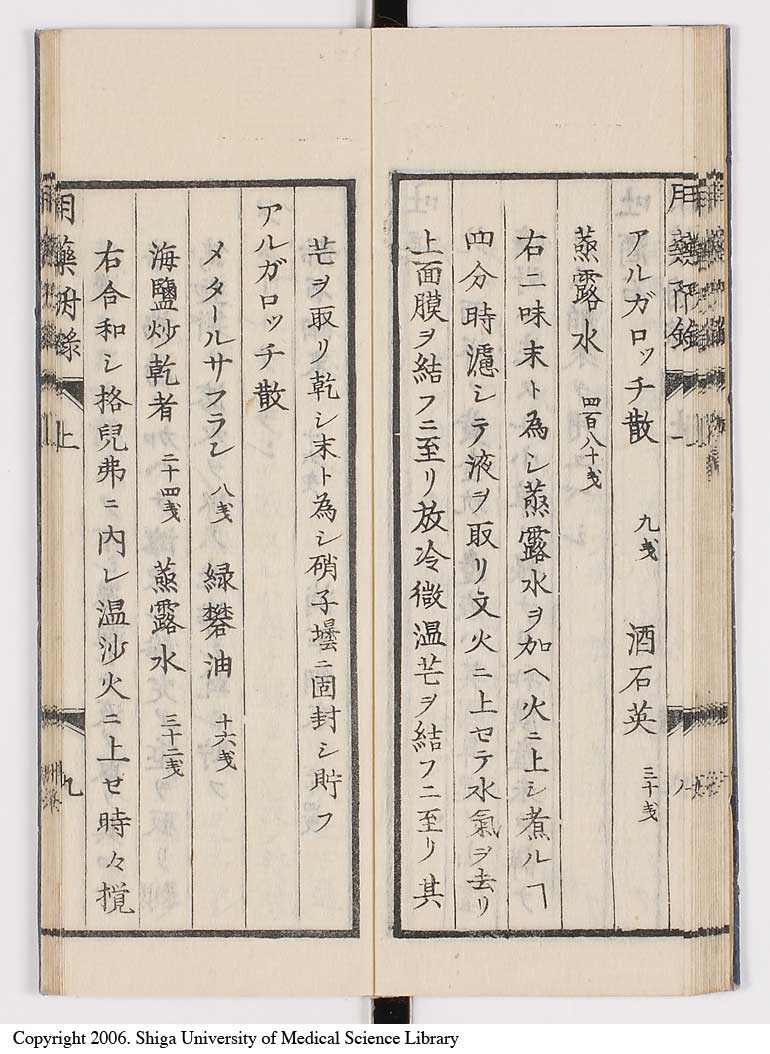 アルガロッチ散 九戔 酒石英 三十戔
蒸露水 四百八十戔
右二味末ト為シ蒸露水ヲ加ヘ火ニ上シ煮ルヿ
四分時濾シテ液ヲ取リ文火ニ上セテ水氣ヲ去リ
上面膜ヲ結フニ至リ放冷微温芒ヲ結フニ至リ其
芒ヲ取リ乾シ末ト為シ硝子壜ニ固封シ貯フ
アルガロッチ散
メタールサフラン 八戔 緑礬油 十六戔
海鹽炒乾者 二十四戔 蒸露水 三十二戔
右合和シ格兒弗ニ内レ温沙火ニ上セ時々攪
上
Copyright 2006. Shiga University of Medical Science Library